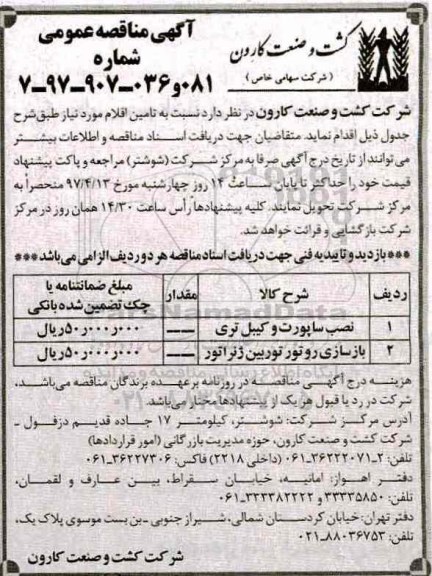 کشت و صنعت کارون
(شرکت سهامی خاص)
آگهی مناقصه عمومی
شماره
۰۸۱و۰۳۶-۹۰۷-۹۷-۷
شرکت کشت و صنعت کارون در نظر دارد نسبت به تامین اقلام مورد نیاز طبق شرح
جدول ذیل اقدام نماید. متقاضیان جهت دریافت اسناد مناقصه و اطلاعات بیشتر
می‌توانند از تاریخ درج آگهی صرفا به مرکز شرکت (شوشتر) مراجعه و پاکت پیشنهاد
قیمت خود را حداکثر تا پایان ساعت ۱۴ روز چهارشنبه مورخ ۹۷/۴/۱۳ منحصراً به
مرکز شرکت تحویل نمایند. کلیه پیشنهادها رأس ساعت ۱۴/۳۰ همان روز در مرکز
شرکت بازگشایی و قرائت خواهد شد.
***بازدید و تاییدیه فنی جهت دریافت اسناد مناقصه هر دو ردیف الزامی می‌باشد***
ردیف شرح کالا مقدار مبلغ ضمانتنامه یا چک تضمین شده بانکی
۱ نصب ساپورت و کیبل تری —— ۵۰٫۰۰۰٫۰۰۰ریال
۲ بازسازی روتور توربین ژنراتور —— ۵۰٫۰۰۰٫۰۰۰ریال
هزینه درج آگهی مناقصه در روزنامه بر عهده برندگان مناقصه می‌باشد،
شرکت در رد یا قبول هر یک از پیشنهادها مختار می‌باشد.
آدرس مرکز شرکت: شوشتر، کیلومتر ۱۷ جاده قدیم دزفول ـ
شرکت کشت و صنعت کارون، حوزه مدیریت بازرگانی (امور قراردادها)
تلفن: ۲-۳۶۲۲۲۰۷۱-۰۶۱ (داخلی ۲۲۱۸) فاکس: ۳۶۲۲۷۳۰۶-۰۶۱
دفتر اهواز: امانیه، خیابان سقراط، بین عارف و لقمان،
تلفن: ۳۳۳۳۵۸۵۰ و ۳۳۳۳۸۲۲۲۲-۰۶۱
دفتر تهران: خیابان کردستان شمالی، شیراز جنوبی -بن بست موسوی پلاک یک،
تلفن: ۸۸۰۳۶۷۵۳-۰۲۱
شرکت کشت و صنعت کارون